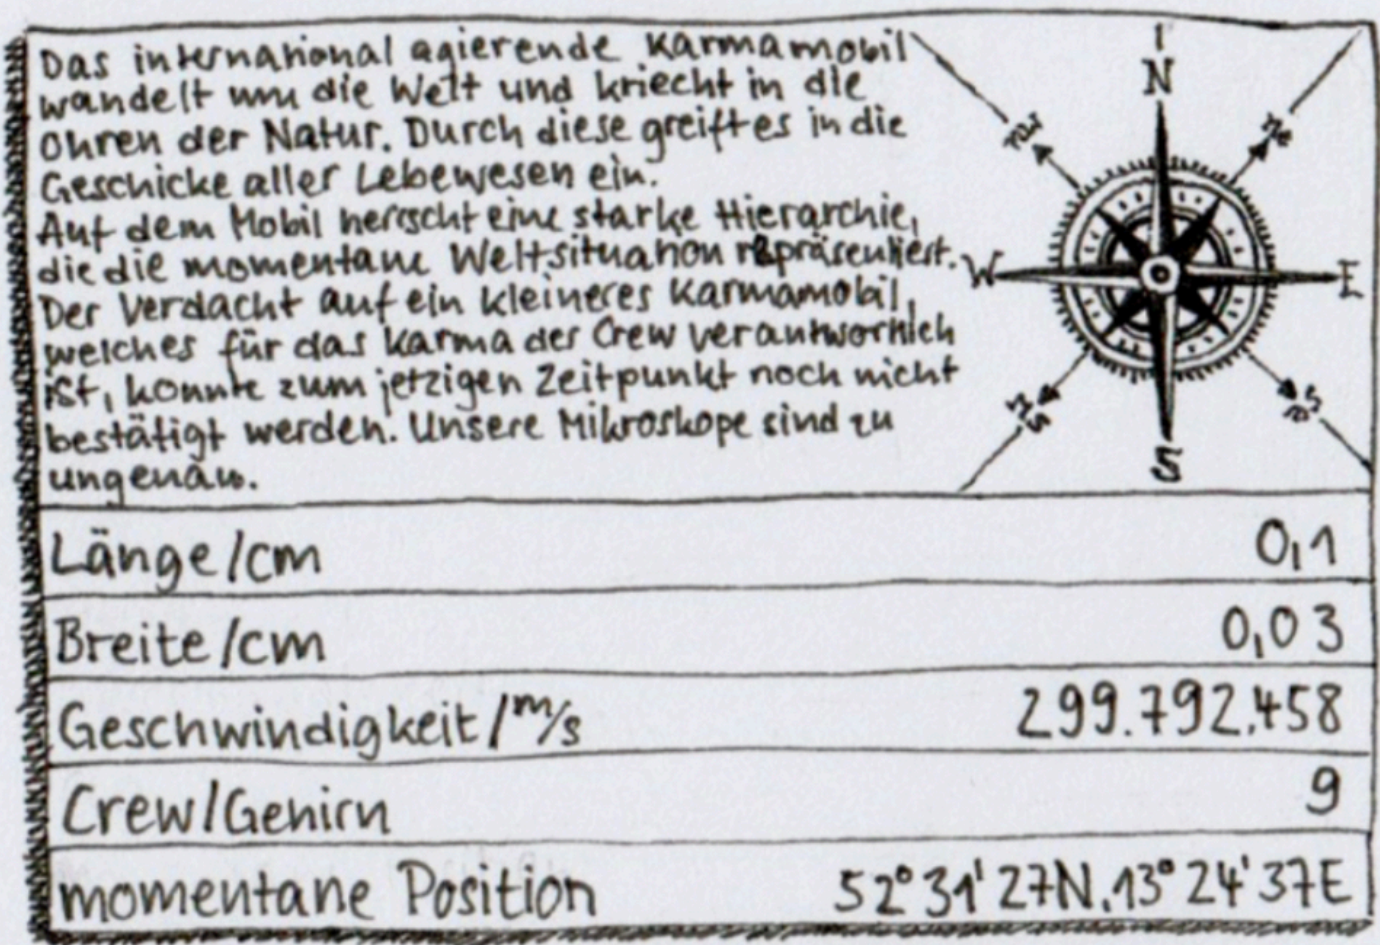 Das international agierende Karmamobil
wandelt um die Welt und kriecht in die
Ohren der Natur. Durch diese greift es in die
Geschicke aller Lebewesen ein.
Auf dem Mobil herrscht eine starke Hierarchie,
die die momentane Weltsituation repräsentiert.
Der Verdacht auf ein kleineres Karmamobil,
welches für das Karma der Crew verantwortlich
ist, konnte zum jetzigen Zeitpunkt noch nicht
bestätigt werden. Unsere Mikroskope sind zu
ungenau.
N
W
E
S
Länge/cm 0,1
Breite/cm 0,03
Geschwindigkeit/m/s 299.792.458
Crew/Gehirn 9
momentane Position 52°31'27N.13°24'37E